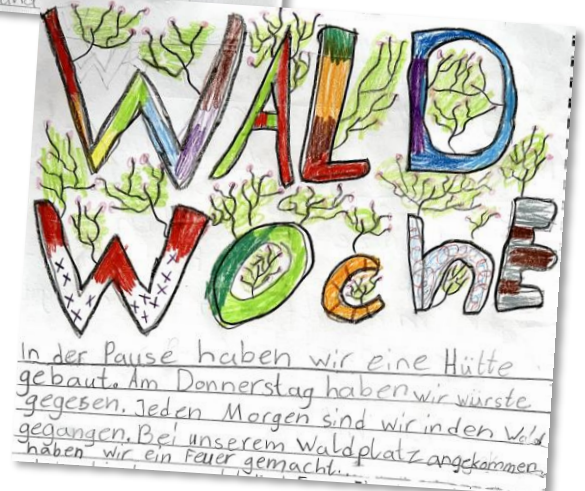 und
WALD
WOChE
In der Pause haben wir eine Hütte
gebaut. Am Donnerstag haben wir würste
gegesen. Jeden Morgen sind wir in den Wald
gegangen. Bei unserem Waldplatz angekommen,
haben wir ein Feuer gemacht.